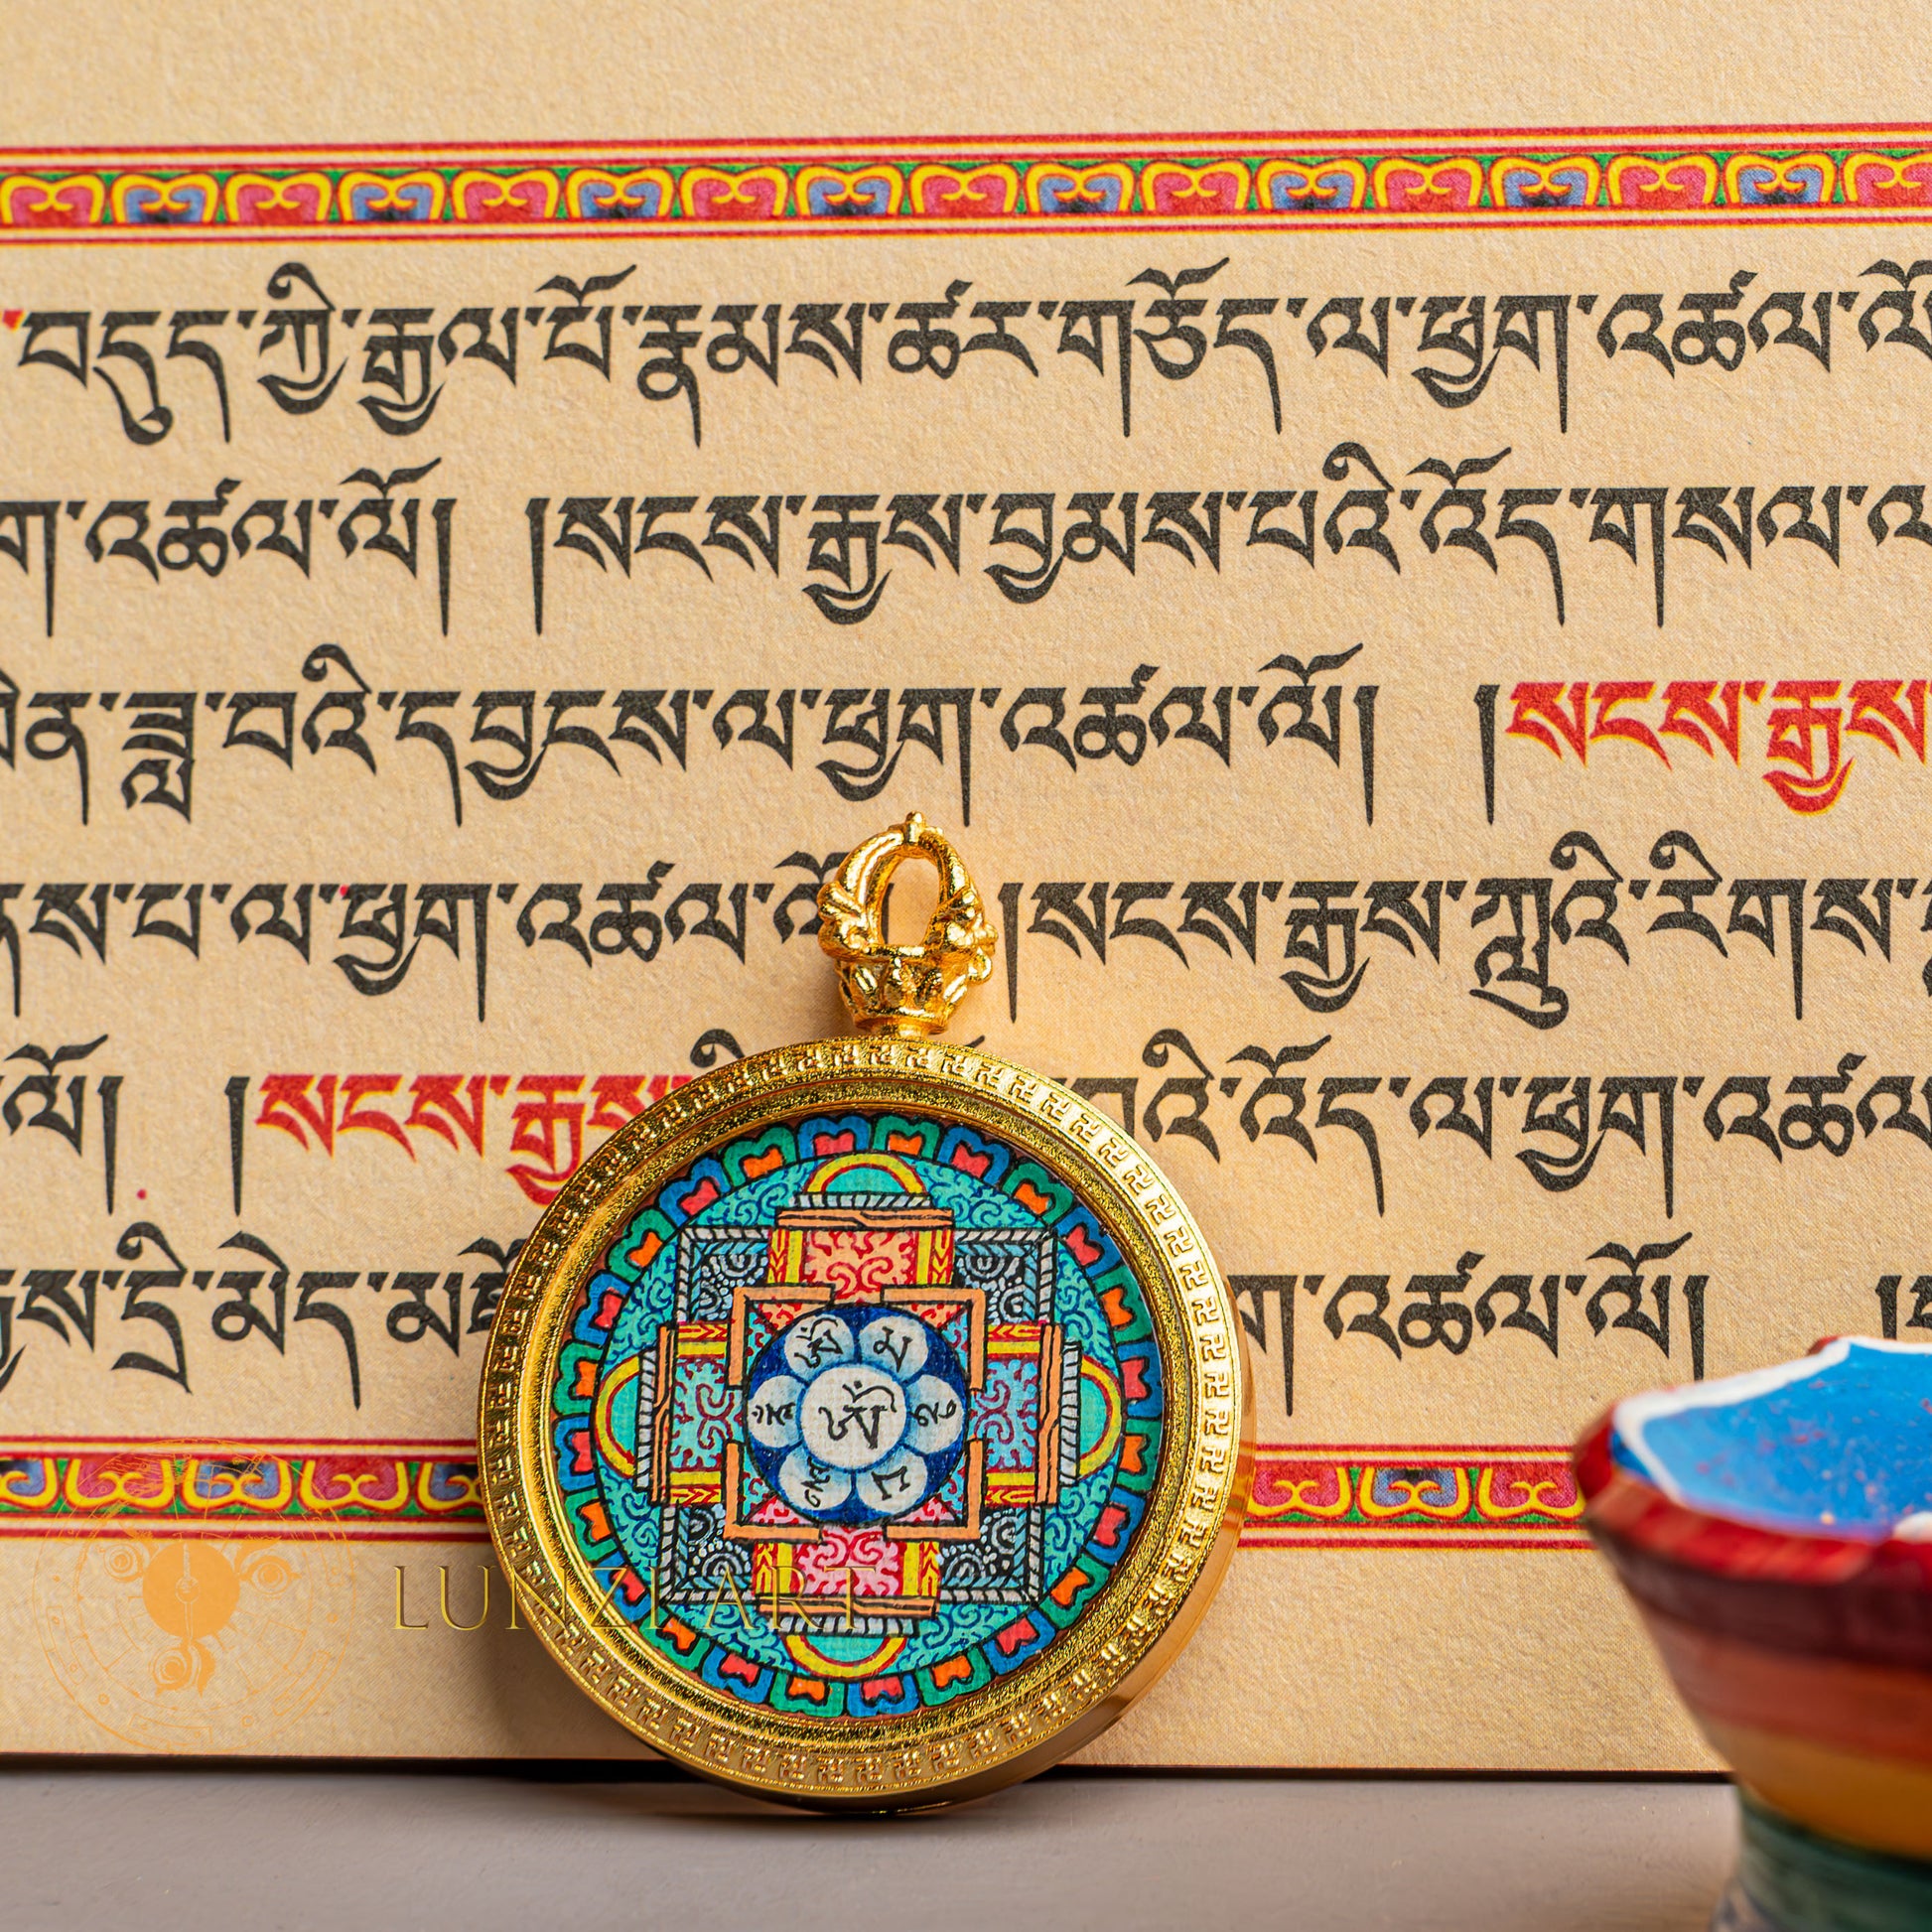 བདུད་ཀྱི་རྒྱལ་པོ་རྣམས་ཚར་གཅོད་ལ་ཕྱག་འཚལ་ལོ
འཚལ་ལོ། །སངས་རྒྱས་བྱམས་པའི་འོད་གསལ་ལ
ཟླ་བའི་དབྱངས་ལ་ཕྱག་འཚལ་ལོ། །སངས་རྒྱས
པ་ལ་ཕྱག་འཚལ །སངས་རྒྱས་ཀླུའི་རིགས
ལོ། །སངས་རྒྱས འོད་ལ་ཕྱག་འཚལ
དྲི་མེད འཚལ་ལོ།
LUNZI ART